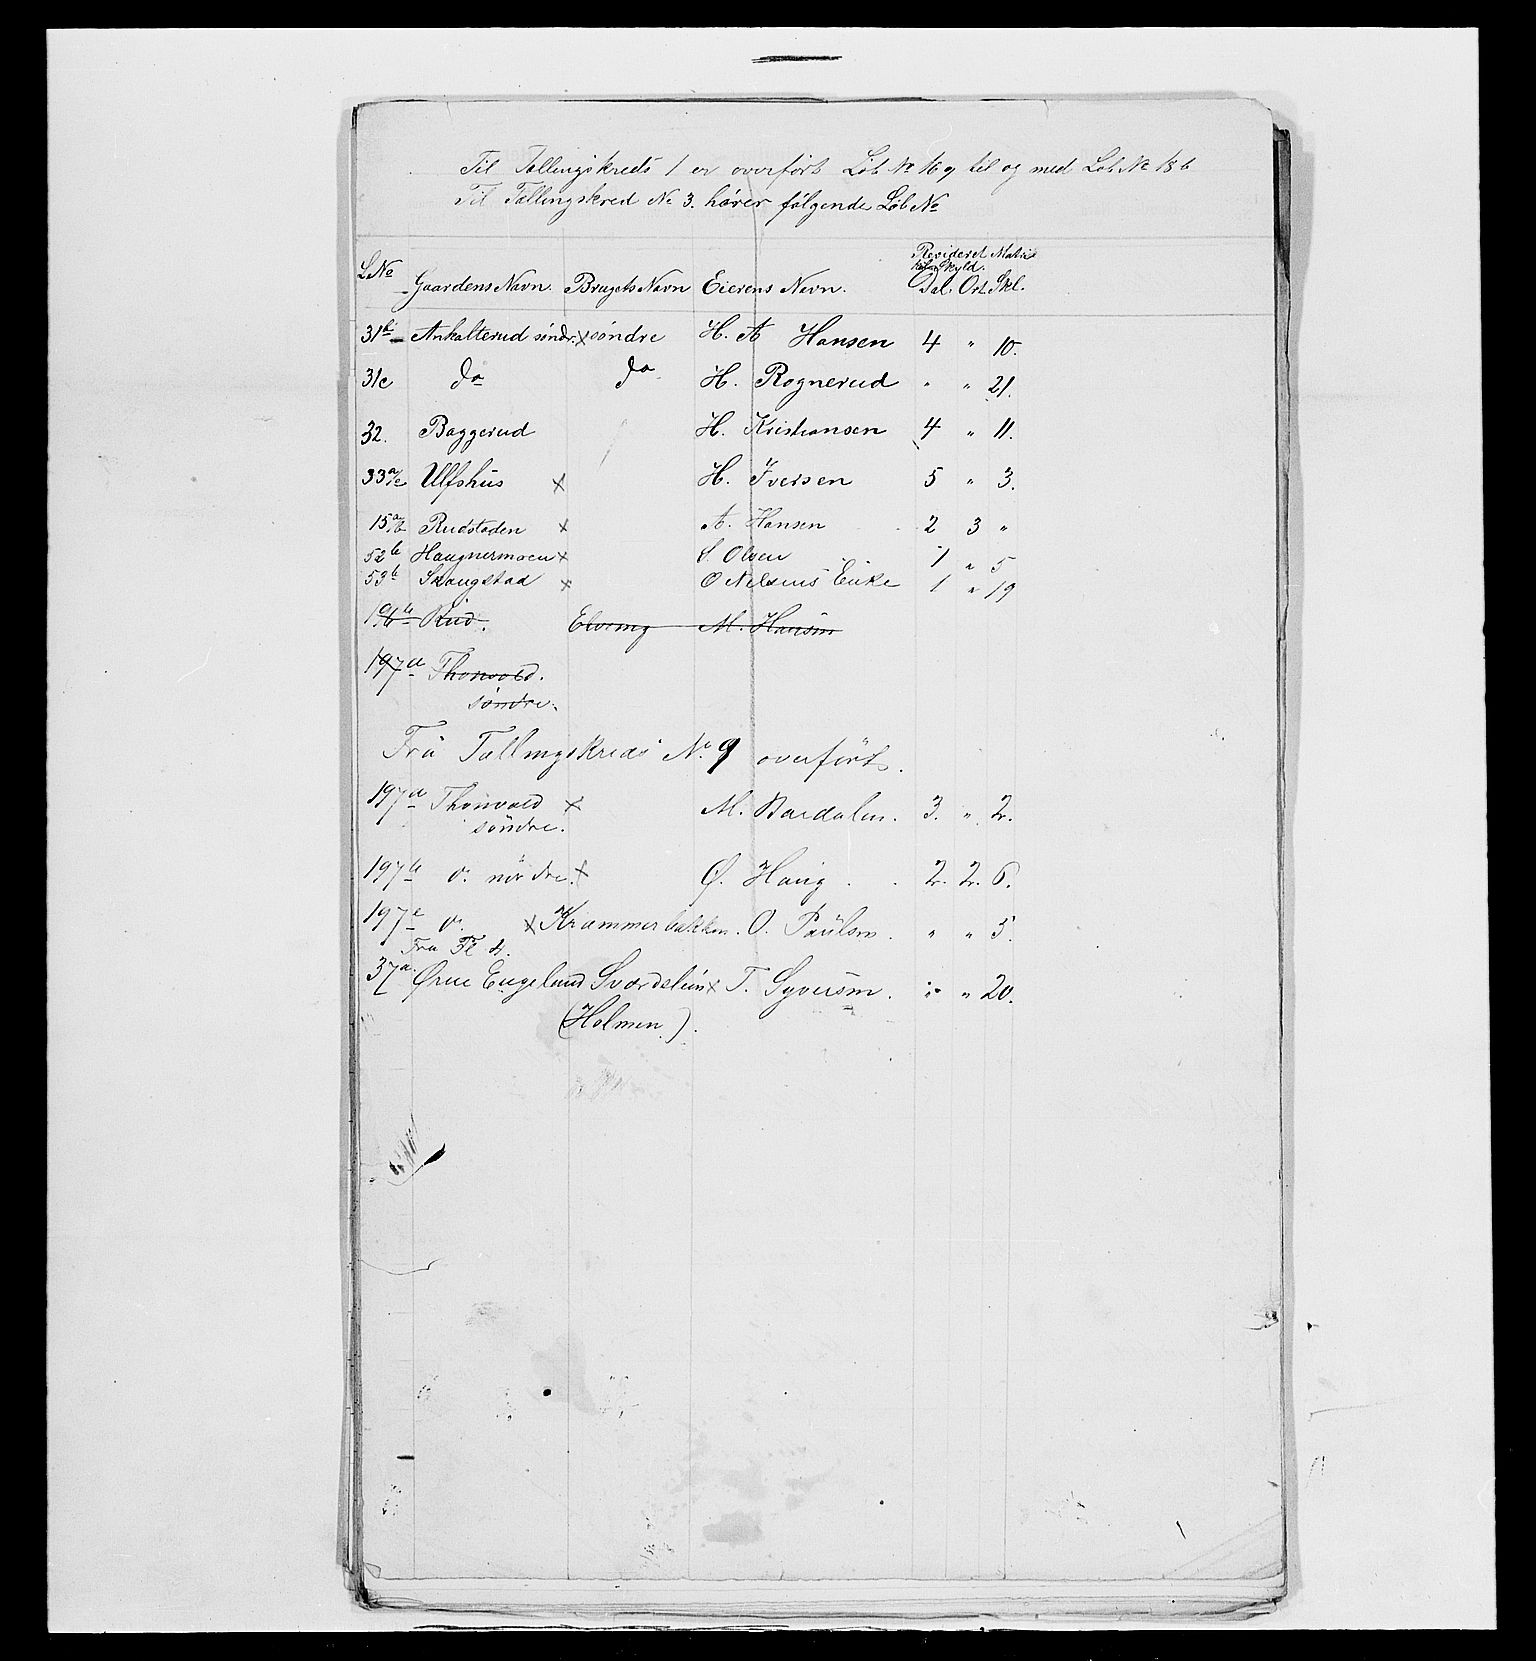 Til Tællingskreds 1 er overført Løb No 169 til og med Løb No 186
Til Tællingskred No 3. hører følgende Løb No
L No Gaardens Navn. Brugets Navn Eierens Navn. Revideret Matrikelskyld. Dal. Ort Skl.
31b Ankalterud søndr. x søndre H. A Hansen 4 " 10.
31c do do H. Rognerud " " 21.
32. Baggerud H. Kristiansen 4 " 11.
33a/c Ulfshus x H. Iversen 5 " 3.
15a/b Rudstaden x A. Hansen 2 3 "
52b Haugnermoen x S. Olsen 1 " 5
53b Skaugstad x O Nilsens Enke 1 " 19
196b Rud. Elveng M. Hansen
197a Thorvold.
søndre.
Fra Tællingskreds No 9 overført.
197a Thonvold x M. Bardalen. 3. " 2.
søndre.
197b do nordre. x Ø. Haug. 2. 2. 6.
197c do x Krammerbakken. O. Paulsen. " " 5.
Fra Tl 4.
37a Øvre Engelund Sværdslien x T. Syversen. " " 20.
(Holmen).